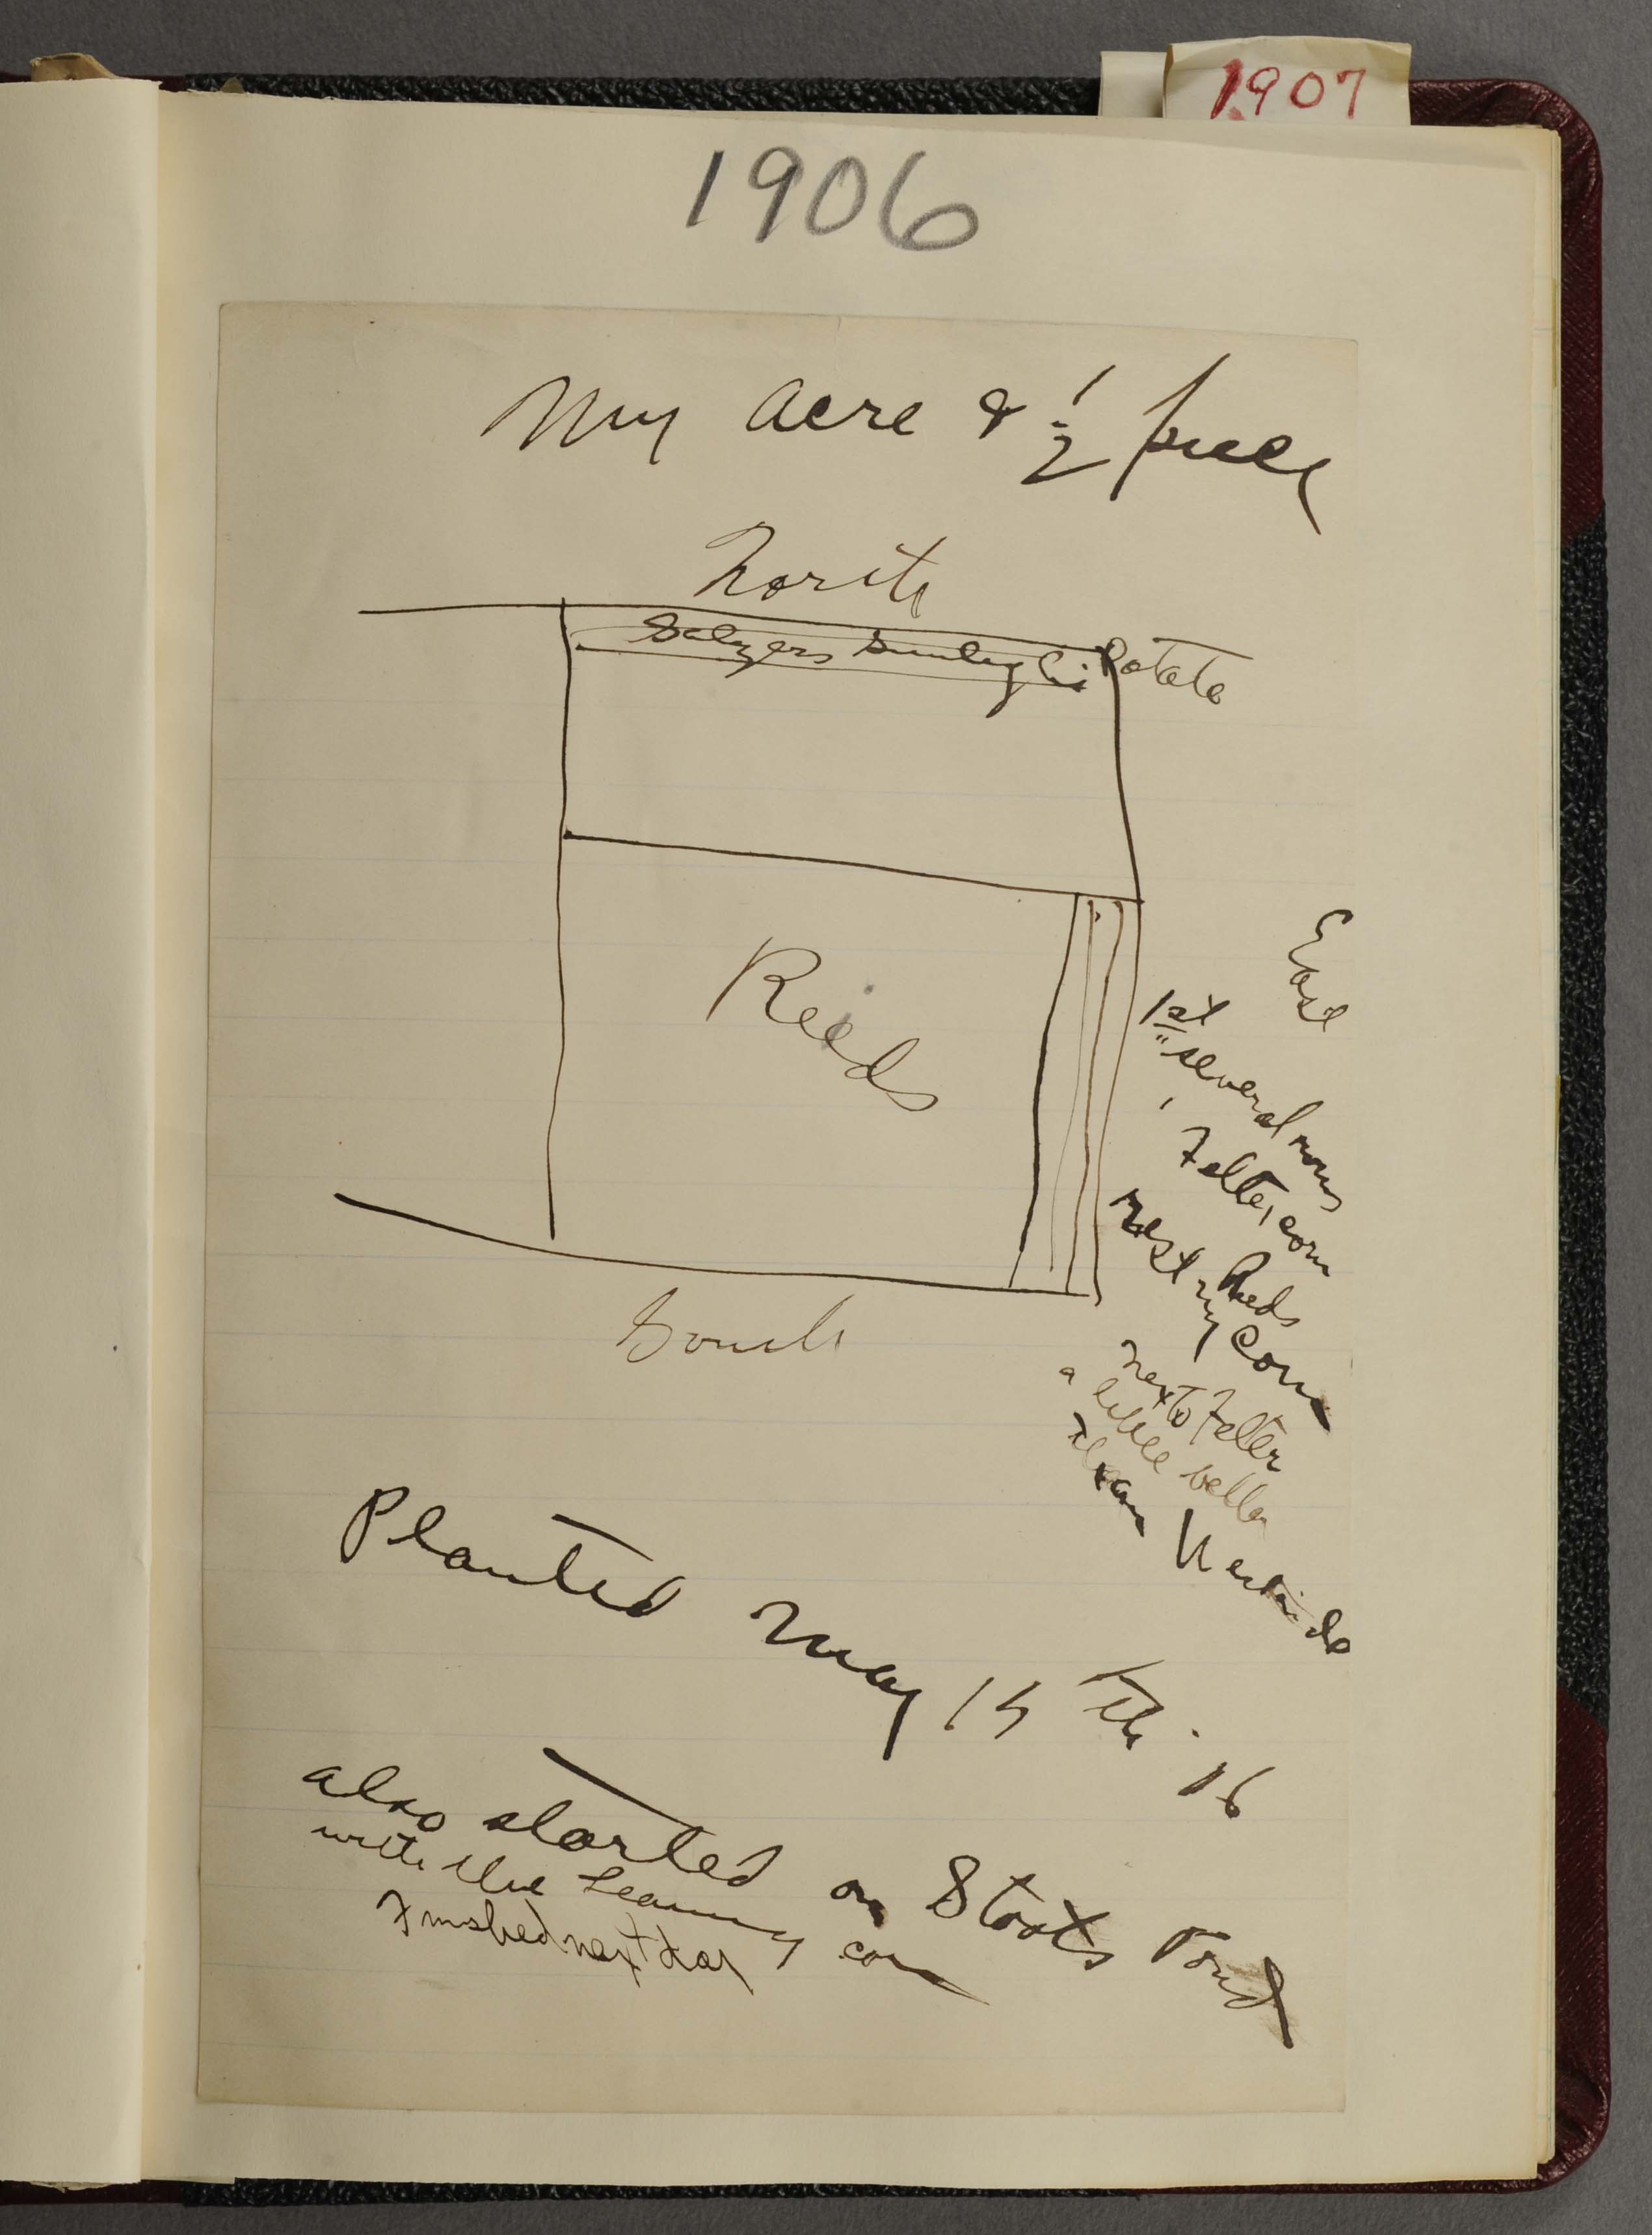 1907
1906
My acre & 1/2 piece
North
Salzers Sunlight Potato
Reeds
East
1st several rows
Felter corn
Rest my Reeds
corn
next to Felter
a little better
than
South
Planted May 15th 16
also started on Stoots Pond
with the Leaming corn
Finished next day